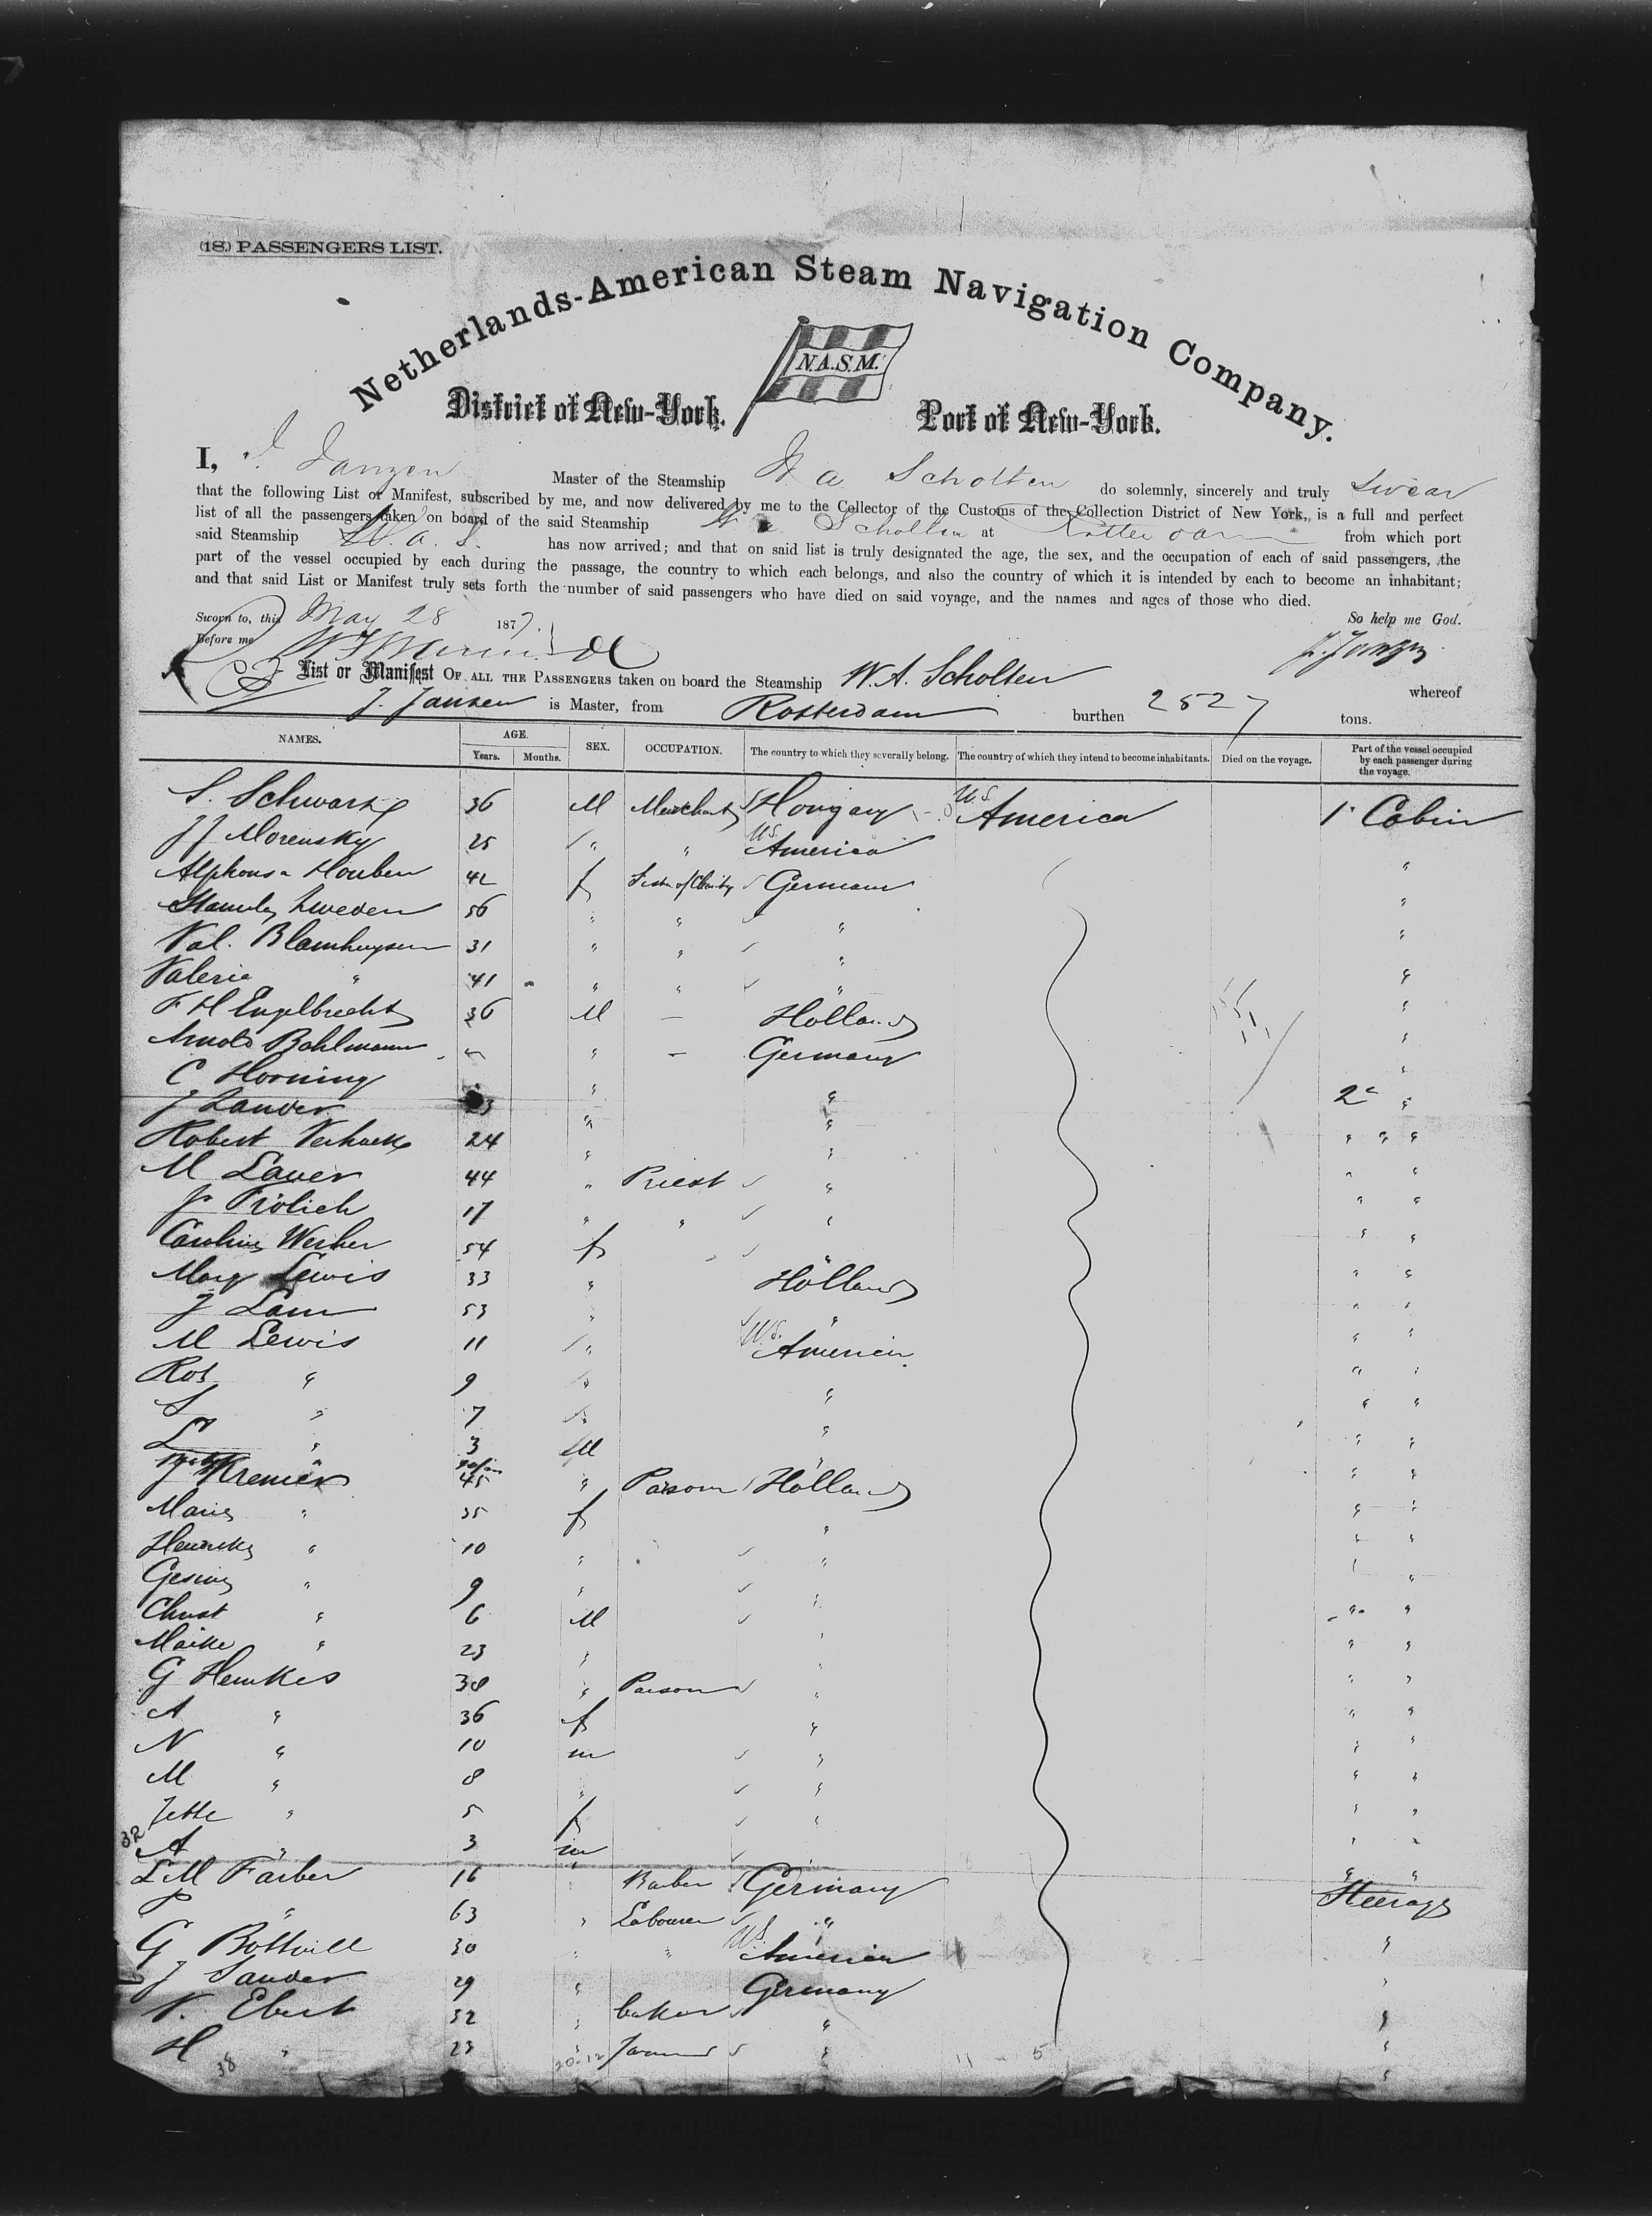 (18.) PASSENGERS LIST.
Netherlands-American Steam Navigation Company.
N.A.S.M.
District of New-York. Port of New-York.
I, J. Janzen Master of the Steamship W. A. Scholten do solemnly, sincerely and truly swear
that the following List or Manifest, subscribed by me, and now delivered by me to the Collector of the Customs of the Collection District of New York, is a full and perfect
list of all the passengers taken on board of the said Steamship W. A. Scholten at Rotterdam from which port
said Steamship W. A. S. has now arrived; and that on said list is truly designated the age, the sex, and the occupation of each of said passengers, the
part of the vessel occupied by each during the passage, the country to which each belongs, and also the country of which it is intended by each to become an inhabitant;
and that said List or Manifest truly sets forth the number of said passengers who have died on said voyage, and the names and ages of those who died.
So help me God.
Sworn to, this May 28 1877.
Before me J. Janzen
List or Manifest OF ALL THE PASSENGERS taken on board the Steamship W. A. Scholten whereof
J. Jansen is Master, from Rotterdam burthen 2527 tons.
NAMES. AGE. Years. Months. SEX. OCCUPATION. The country to which they severally belong. The country of which they intend to become inhabitants. Died on the voyage. Part of the vessel occupied by each passenger during the voyage.
S. Schwartz 36 M Merchant Hongary U.S. America 1e Cabin
J J Morensky 25 " " U.S. America "
Alphonsa Houben 42 f Sister of Charity Germany "
Sweden 56 " " " "
Val. Blamhuysen 31 " " " "
Valeria " 41 " " " "
F H Engelbrecht 36 M — Holland "
Arnold Bahlmann " — Germany "
C Horning " " 2e "
J Zander 23 " " " " "
Robert 24 " " " "
M Lauer 44 " Priest " " "
J Frölich 17 " " " " "
Caroline Weiher 54 f " " "
Mary Lewis 33 " Holland " "
J Lam 53 " " " "
M Lewis 11 " U.S. America " "
Rob " 9 " " " "
S " 7 " " " "
L " 3 M " " "
J Kremer 45 " Parson Holland " "
Marie " 35 f " " "
" 10 " " " "
Gesina " 9 " " " "
Christ " 6 M " " "
Maike " 23 " " " "
G Hemkes 38 " Parson " " "
A " 36 f " " "
N " 10 m " " "
M " 8 " " " "
Jette " 5 f " " "
32 A " 3 m " "
L M Färber 16 " Barber Germany Steerage
P " 63 " Labourer " "
G Bottwill 30 " " U.S. America "
J Sander 29 " Germany "
N. Ebert 32 " baker " "
H " 23 " " "
38 20-12 11 - 5